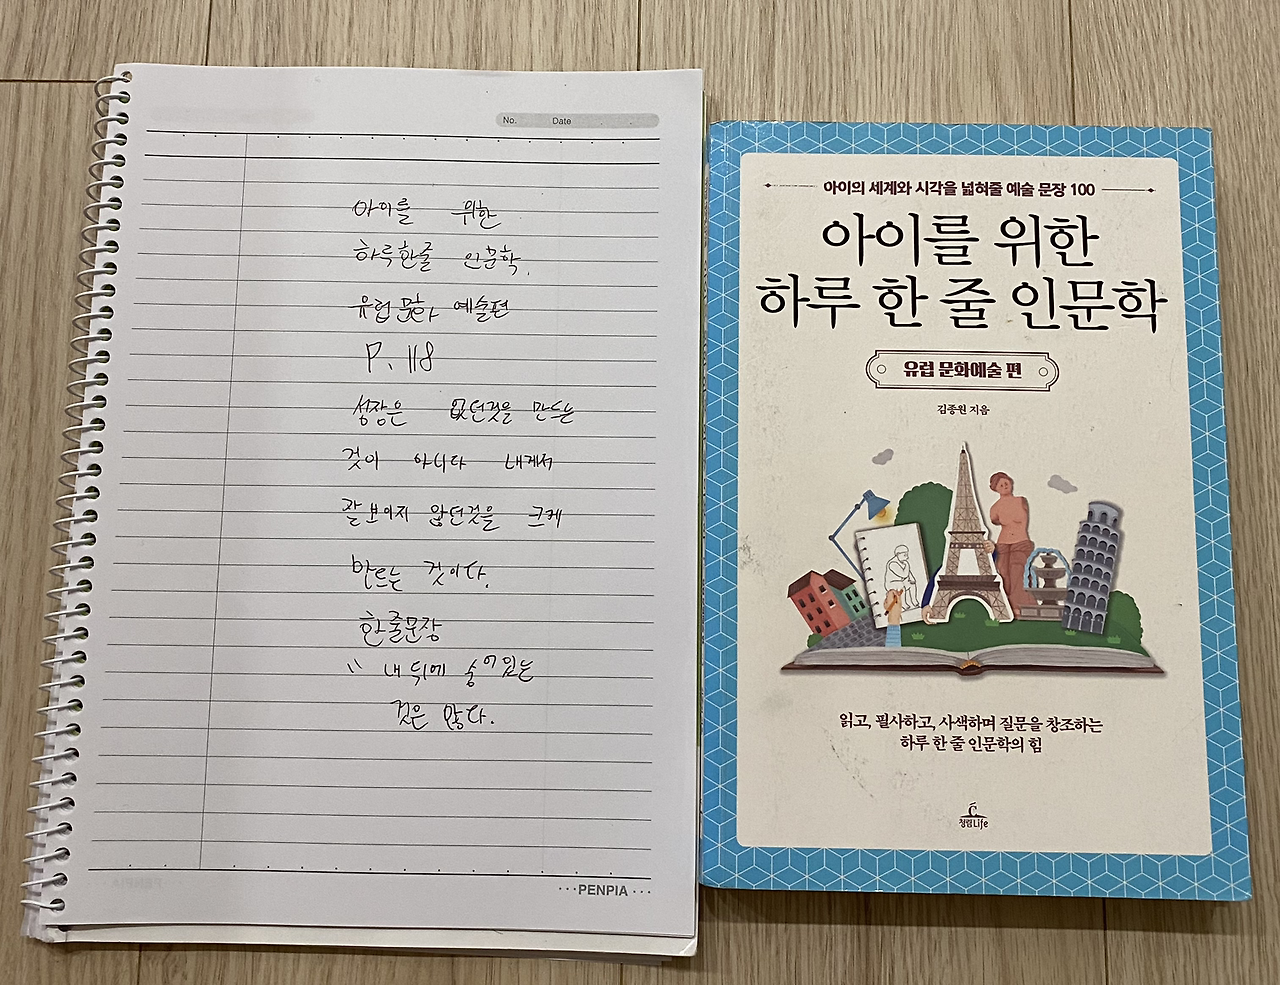 No. Date
아이를 위한
하루한줄 인문학.
유럽문화 예술편
P. 118
성장은 없던것을 만드는
것이 아니다 내게서
잘보이지 않던것을 크게
만드는 것이다.
한줄문장
" 내 뒤에 숨어있는
것은 많다.
···PENPIA···
아이의 세계와 시각을 넓혀줄 예술 문장 100
아이를 위한
하루 한 줄 인문학
유럽 문화예술 편
김종원 지음
읽고, 필사하고, 사색하며 질문을 창조하는
하루 한 줄 인문학의 힘
청림Life